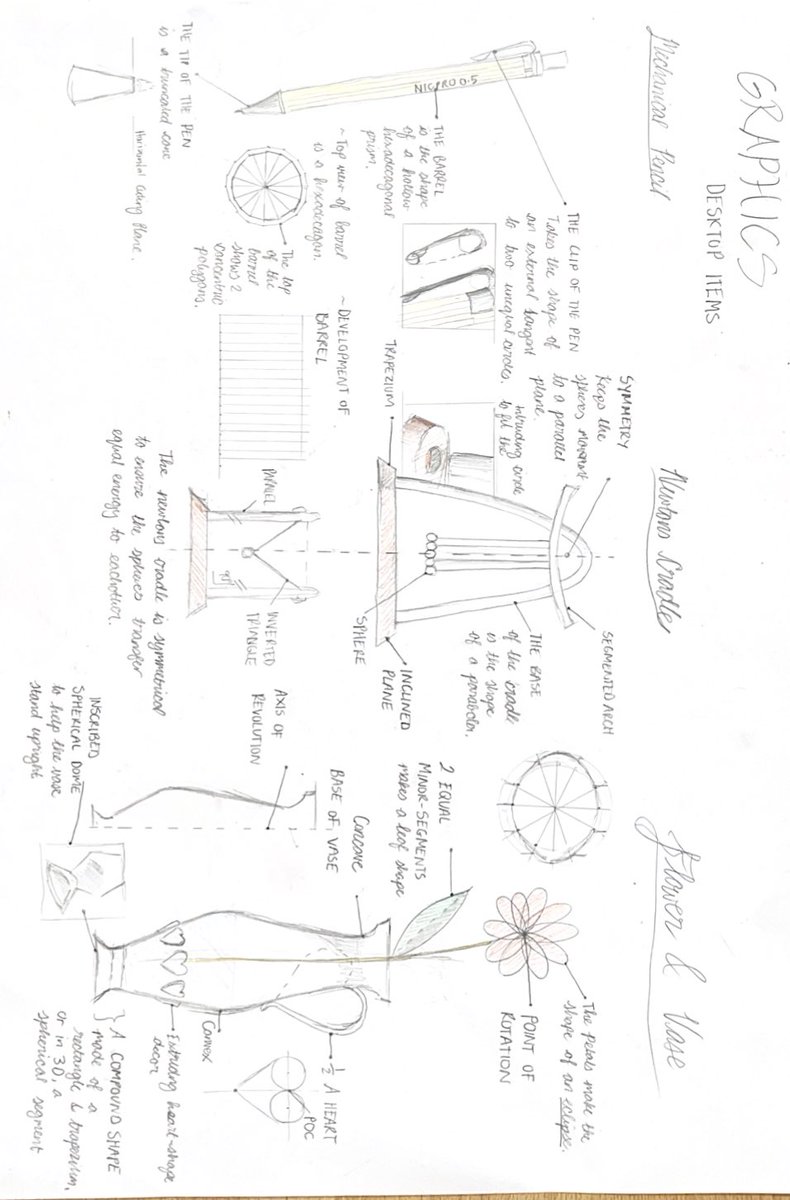 GRAPHICS
DESKTOP ITEMS
Mechanical Pencil
THE TIP OF THE PEN
is a truncated cone
Horizontal Cutting Plane.
NICPRO 0.5
THE BARREL
is the shape
of a hollow
hexadecagonal
prism.
THE CLIP OF THE PEN
Takes the shape of
an external tangent
to two unequal circles.
~ Top view of barrel
is a hexadecagon.
The top
of the
barrel
shows 2
concentric
polygons.
~ DEVELOPMENT OF
BARREL
Newtons Cradle
SYMMETRY
Keeps the
spheres movement
to a parallel
plane.
Intruding circle
to fit the
TRAPEZIUM
SEGMENTED ARCH
THE BASE
of the cradle
is the shape
of a parabola.
SPHERE
INCLINED
PLANE
PARALLEL
90°
INVERTED
TRIANGLE
The newtons cradle is symmetrical
to ensure the spheres transfer
equal energy to eachother.
Flower & Vase
The Petals make the
shape of an eclipse.
POINT OF
ROTATION
2 EQUAL
MINOR-SEGMENTS
makes a leaf shape
Concave
BASE OF VASE
AXIS OF
REVOLUTION
INSCRIBED
SPHERICAL DOME
to help the vase
stand upright
½ A HEART
POC
Convex
Extruding heart-shape
decor
} A COMPOUND SHAPE
made of a
rectangle & trapezium,
or in 3D, a
spherical segment